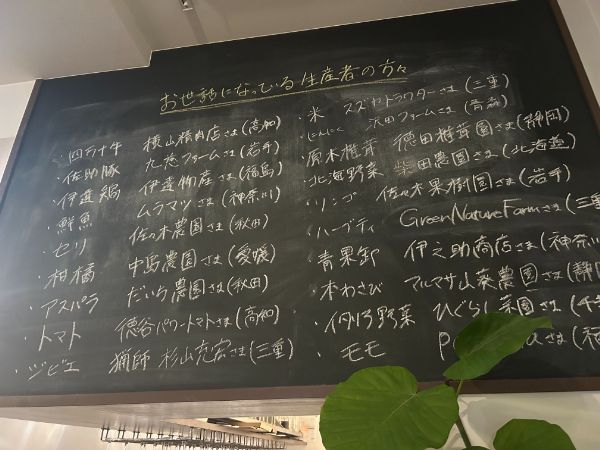 お世話になっている生産者の方々
・四万十牛 横山精肉店さま(高知)
・佐助豚 九戸ファームさま(岩手)
・伊達鶏 伊達物産さま(福島)
・鮮魚 ムラマツさま(神奈川)
・セリ 佐々木農園さま(秋田)
・柑橘 中島農園さま(愛媛)
・アスパラ だいち農園さま(秋田)
・トマト 徳谷パワートマトさま(高知)
・ジビエ 猟師 杉山充宏さま(三重)
・米 スズカトラクターさま(三重)
・にんにく 沢田ファームさま(青森)
・原木椎茸 徳田椎茸園さま(静岡)
・北海野菜 柴田農園さま(北海道)
・リンゴ 佐々木果樹園さま(岩手)
・ハーブティ GreenNatureFarmさま(三重
・青果卸 伊之助商店さま(神奈川
・本わさび マルマサ山葵農園さま(静岡
・野菜 ひぐらし菜園さま(千
・モモ